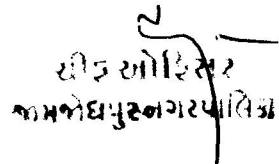 ચીફ ઓફિસર
જામજોધપુર નગરપાલિકા